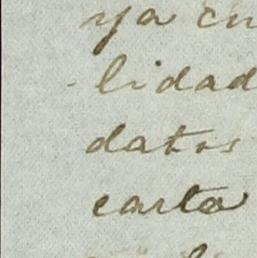 ya cu
lidad
datos
carta